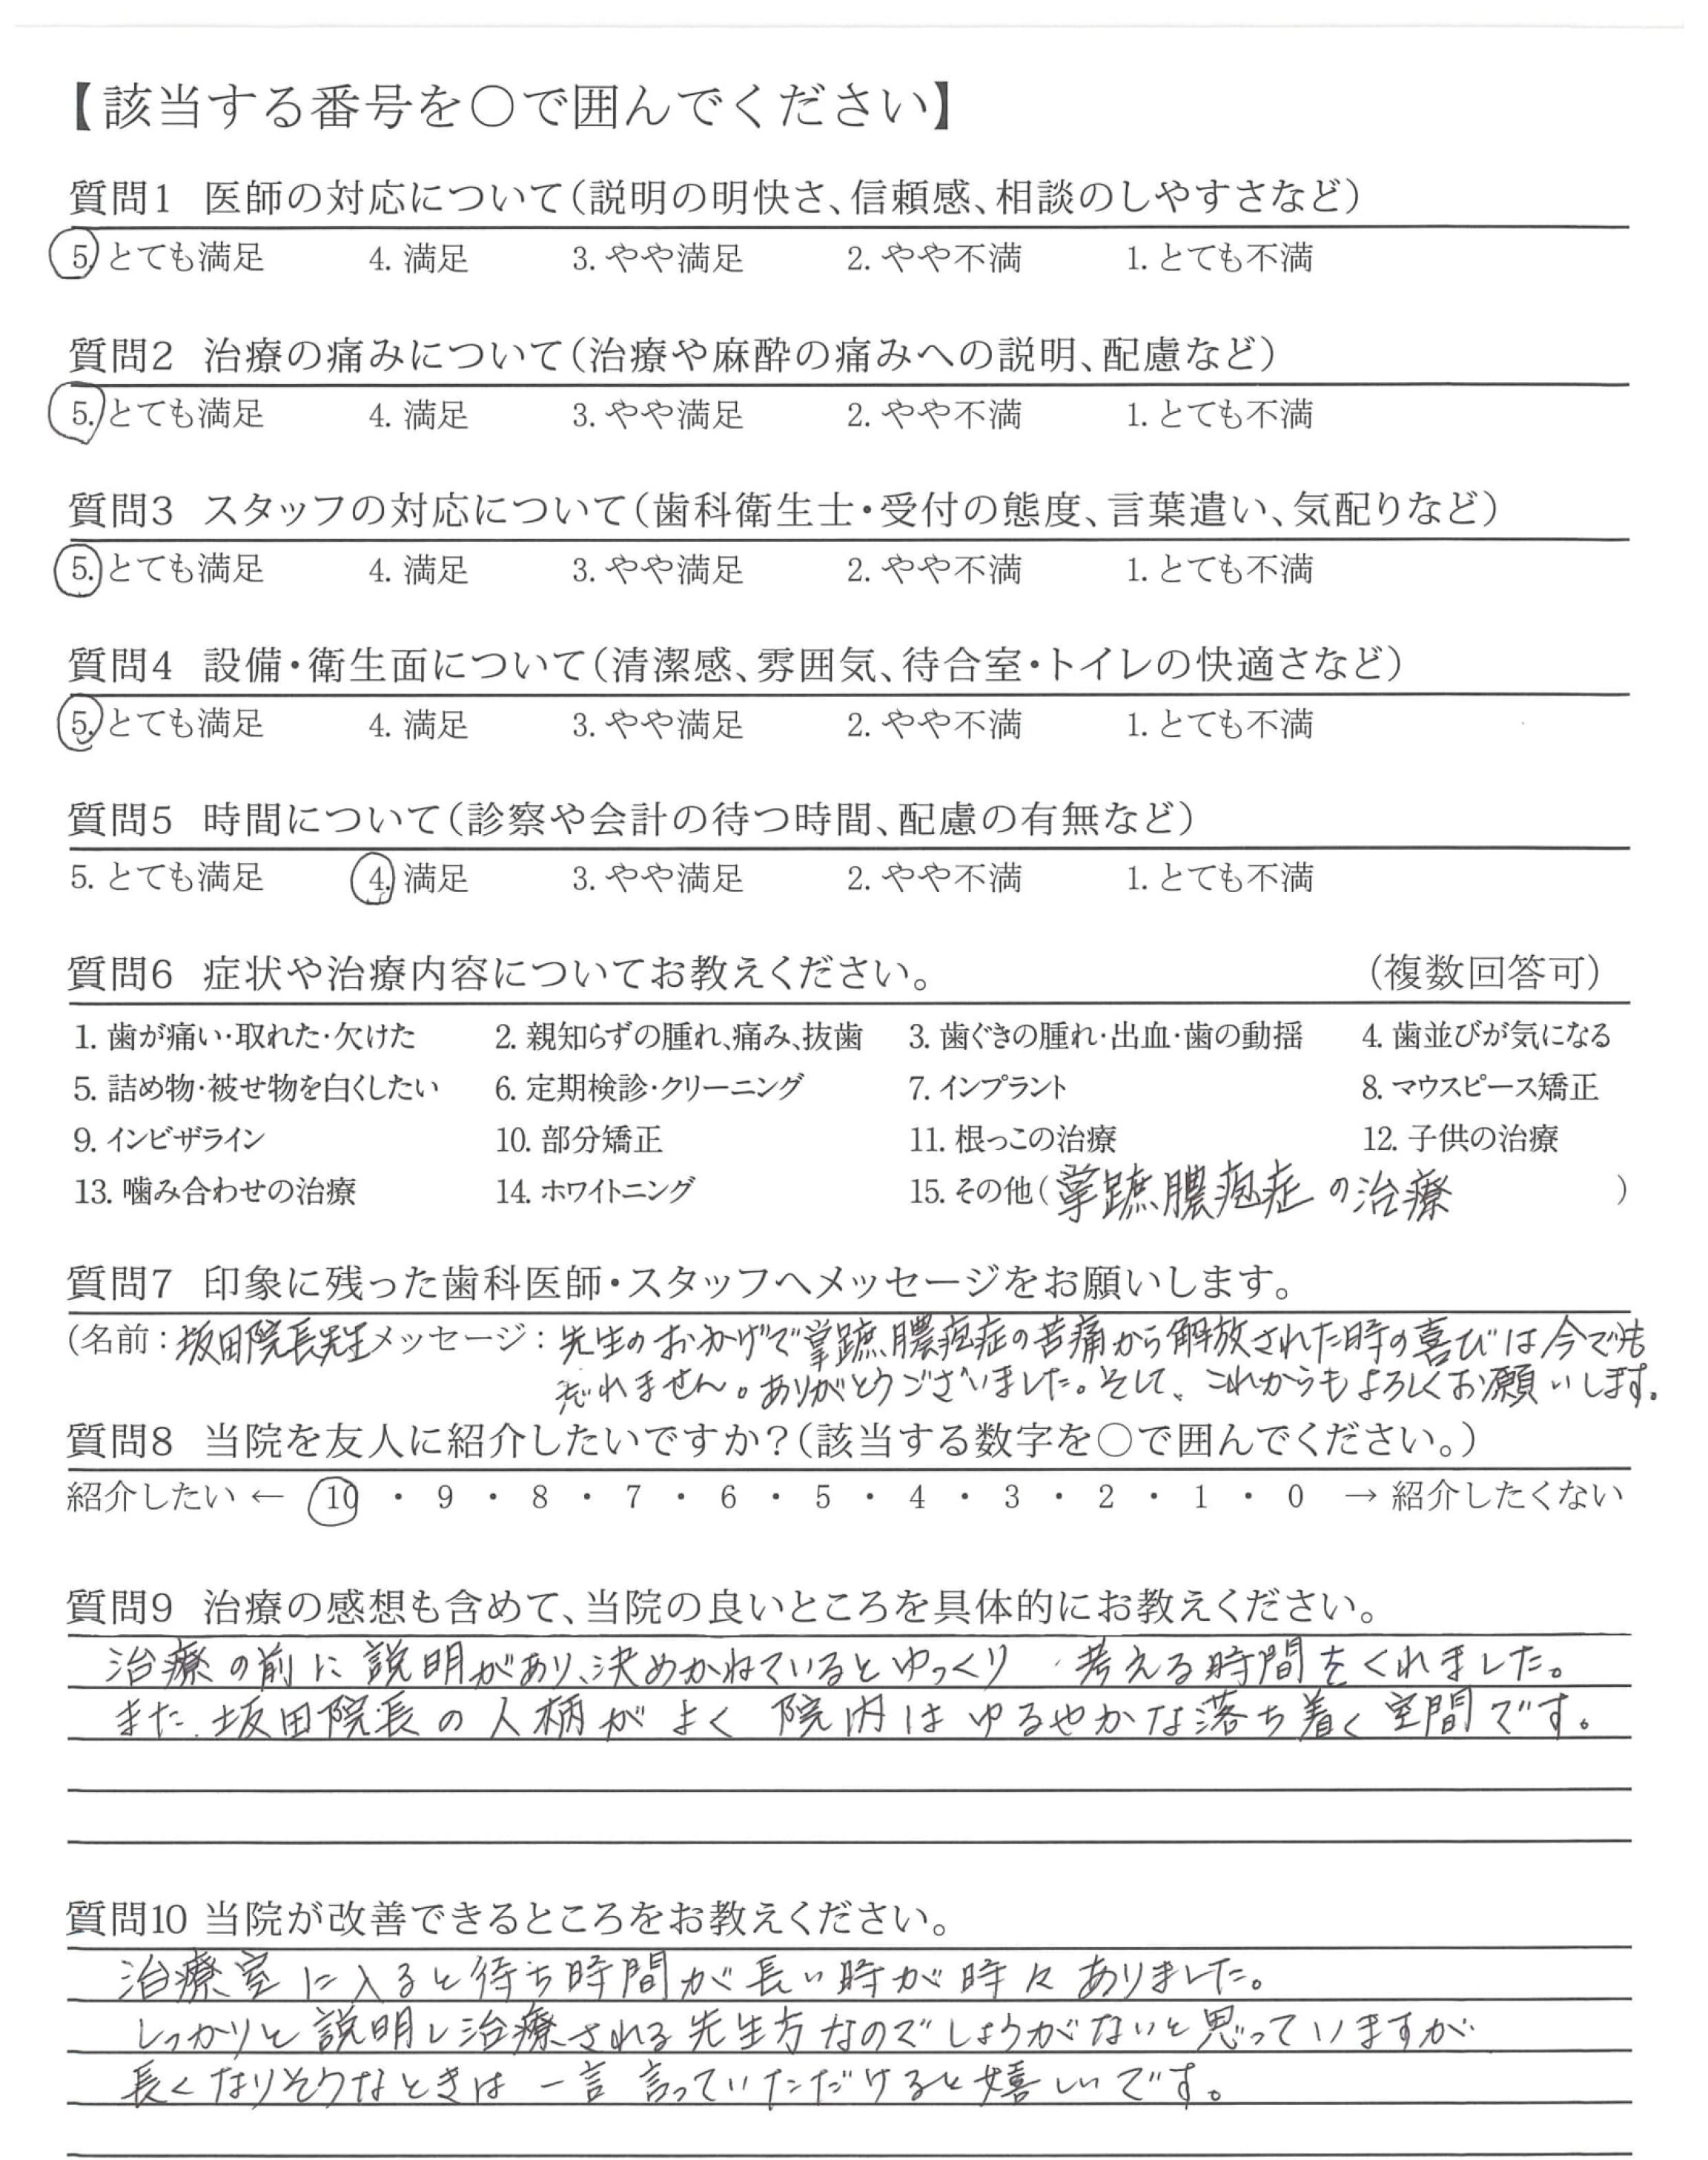 【該当する番号を○で囲んでください】
質問1 医師の対応について（説明の明快さ、信頼感、相談のしやすさなど）
5. とても満足 4. 満足 3. やや満足 2. やや不満 1. とても不満
質問2 治療の痛みについて（治療や麻酔の痛みへの説明、配慮など）
5. とても満足 4. 満足 3. やや満足 2. やや不満 1. とても不満
質問3 スタッフの対応について（歯科衛生士・受付の態度、言葉遣い、気配りなど）
5. とても満足 4. 満足 3. やや満足 2. やや不満 1. とても不満
質問4 設備・衛生面について（清潔感、雰囲気、待合室・トイレの快適さなど）
5. とても満足 4. 満足 3. やや満足 2. やや不満 1. とても不満
質問5 時間について（診察や会計の待つ時間、配慮の有無など）
5. とても満足 4. 満足 3. やや満足 2. やや不満 1. とても不満
質問6 症状や治療内容についてお教えください。 （複数回答可）
1. 歯が痛い・取れた・欠けた 2. 親知らずの腫れ、痛み、抜歯 3. 歯ぐきの腫れ・出血・歯の動揺 4. 歯並びが気になる
5. 詰め物・被せ物を白くしたい 6. 定期検診・クリーニング 7. インプラント 8. マウスピース矯正
9. インビザライン 10. 部分矯正 11. 根っこの治療 12. 子供の治療
13. 噛み合わせの治療 14. ホワイトニング 15. その他（掌蹠膿疱症の治療 ）
質問7 印象に残った歯科医師・スタッフへメッセージをお願いします。
（名前：坂田院長先生メッセージ：先生のおかげで掌蹠膿疱症の苦痛から解放された時の喜びは今でも
忘れません。ありがとうございました。そして、これからもよろしくお願いします。
質問8 当院を友人に紹介したいですか？（該当する数字を○で囲んでください。）
紹介したい ← 10 ・ 9 ・ 8 ・ 7 ・ 6 ・ 5 ・ 4 ・ 3 ・ 2 ・ 1 ・ 0 → 紹介したくない
質問9 治療の感想も含めて、当院の良いところを具体的にお教えください。
治療の前に説明があり、決めかねているとゆっくり 考える時間をくれました。
また、坂田院長の人柄がよく 院内はゆるやかな落ち着く空間です。
質問10 当院が改善できるところをお教えください。
治療室に入ると待ち時間が長い時が時々ありました。
しっかりと説明し治療される先生方なのでしょうがないと思っていますが
長くなりそうなときは一言言っていただけると嬉しいです。